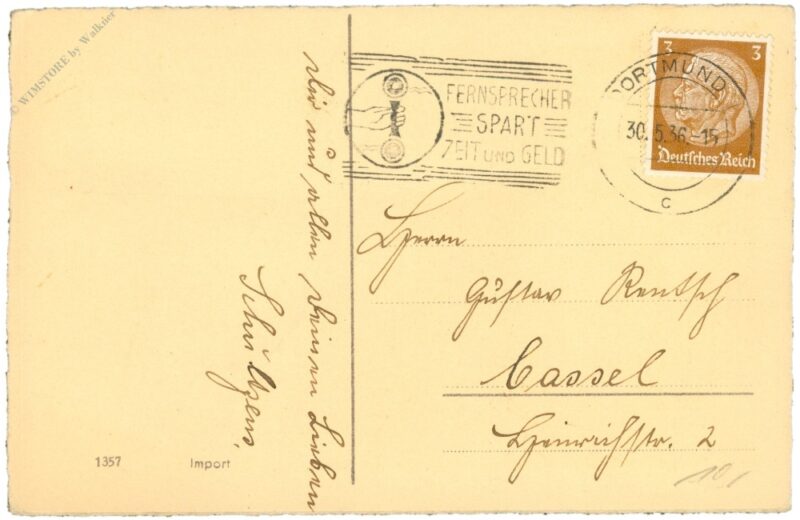 © WIMSTORE by Walkner
Dir und allen Deinen Lieben
Schultzens.
1357
Import
FERNSPRECHER
SPART
ZEIT UND GELD
DORTMUND
30.5.36.-15
c
3 3
Deutsches Reich
Herrn
Gustav Rentsch
Cassel
Heinrichstr. 2